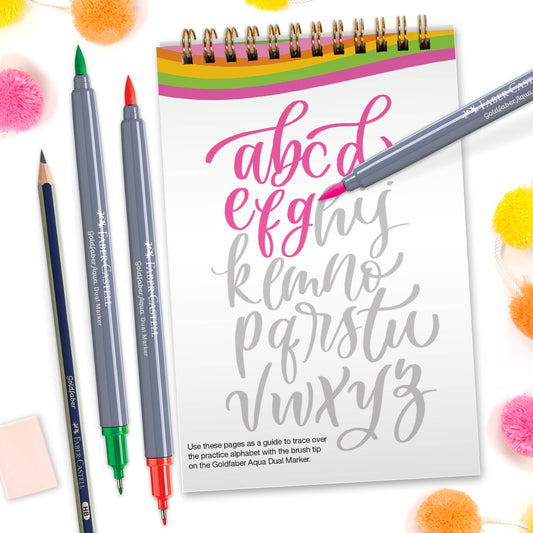 abcd
efghij
klmno
pqrstu
vwxyz
Use these pages as a guide to trace over
the practice alphabet with the brush tip
on the Goldfaber Aqua Dual Marker.
FABER-CASTELL
Goldfaber Aqua Dual Marker
FABER-CASTELL
Goldfaber Aqua Dual Marker
FABER-CASTELL
Goldfaber Aqua Dual
Goldfaber
FABER-CASTELL
HB